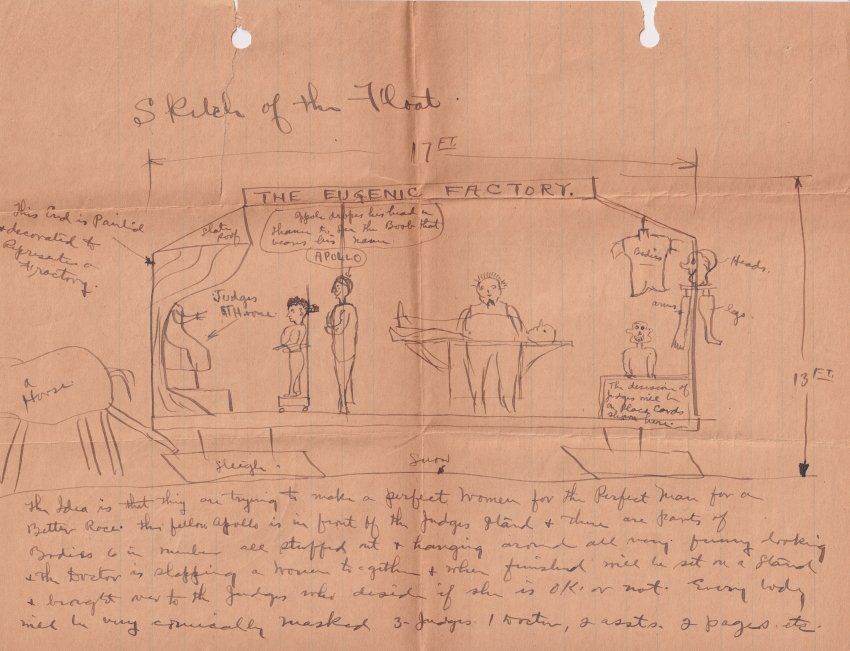 Sketch of the Float.
17 FT.
THE EUGENIC FACTORY.
This End is Painted
& decorated to
Represent a
Factory.
Slate
Roof
Appolo dropes his head in
shame to see the Boob that
bears his name.
APOLLO
Judges
Throne
Bodies
Heads.
arms
legs.
The decision of
Judges will be
on Place Cards
shown here.
13 FT.
a
Horse
Sleigh.
Snow
The Idea is that they are trying to make a perfect Women for the Perfect Man for a
Better Race. This fellow Apollo is in front of the Judges Stand & there are parts of
Bodies 6 in number all stuffed out & hanging around all very funny looking
& the Doctor is slapping a Women together & when finished will be set on a Stand
& brought over to the Judges who decide if she is O.K. or not. Every body
will be very comically masked 3- Judges. 1 Doctor, 2 assts. 2 pages etc.